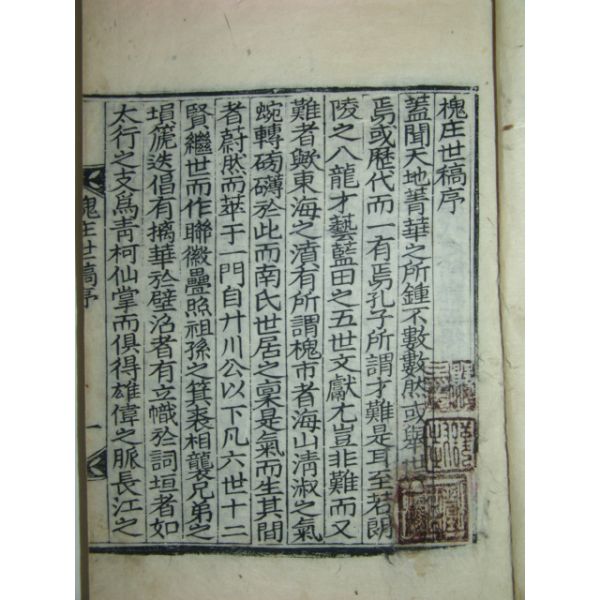 槐庄世稿序
蓋聞天地菁華之所鍾不數數然或與世
焉或歷代而一有焉孔子所謂才難是耳至若朗
陵之八龍才藝藍田之五世文獻尤豈非難而又
難者歟東海之濆有所謂槐市者海山淸淑之氣
蜿轉磅礴於此而南氏世居之稟是氣而生其間
者蔚然而萃于一門自廾川公以下凡六世十二
賢繼世而作聯徽疊照祖孫之箕裘相襲兄弟之
塤箎迭倡有摛華於壁沼者有立幟於詞垣者如
太行之支爲靑柯仙掌而俱得雄偉之脈長江之
槐庄世稿序
一